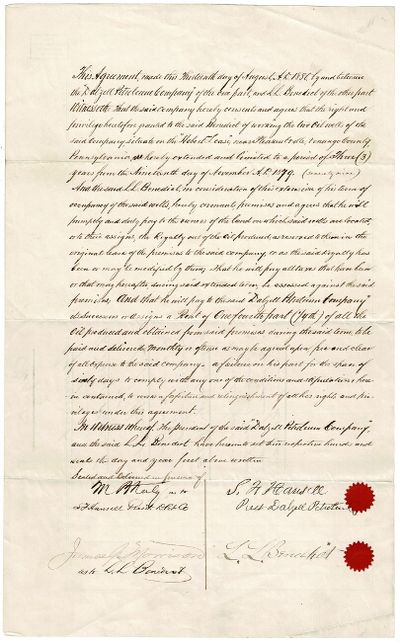 This Agreement, made this Thirteenth day of August A.D. 1880 by and between
the "Dalzell Petroleum Company" of the one part, and L.L. Benedict of the other part
Witnesseth That the said Company hereby consents and agrees that the right and
privilege heretofore granted to the said Benedict of working the two Oil wells of the
said Company situate on the near Pleasantville, Venango County
Pennsylvania, is hereby extended and limited to a period of Three (3)
years from the Nineteenth day of November A.D. 1879. (seventy nine)
And the said L.L. Benedict, in consideration of this extension of his term of
occupancy of the said wells, hereby covenants promises and agrees that he will
promptly and duly pay to the owners of the land on which said wells are located,
or to their assigns, the Royalty out of the oil produced, as reserved to them in the
original lease of the premises to the said company, or as the said Royalty has
been or may be modified by them; that he will pay all taxes that have been
or that may hereafter during said extended term, be assessed against the said
premises, And that he will pay to the said "Dalzell Petroleum Company"
its successors or assigns a Rent of One fourth part (¼th) of all the
Oil produced and obtained from said premises during the said term, to be
paid and delivered, monthly or oftener as may be agreed upon, free and clear
of all expense to the said company. a failure on his part for the space of
sixty days to comply with any one of the conditions and stipulations here-
in contained, to work a forfeiture and relinquishment of all his rights and pri-
vileges under this agreement.
In witness whereof the president of the said "Dalzell Petroleum Company,"
and the said L.L. Benedict have hereunto set their respective hands and
seals the day and year first above written
Sealed and delivered in presence of
S. F. Hansell
Prest Dalzell Petroleum
L. L. Benedict
as to L. L. Benedict